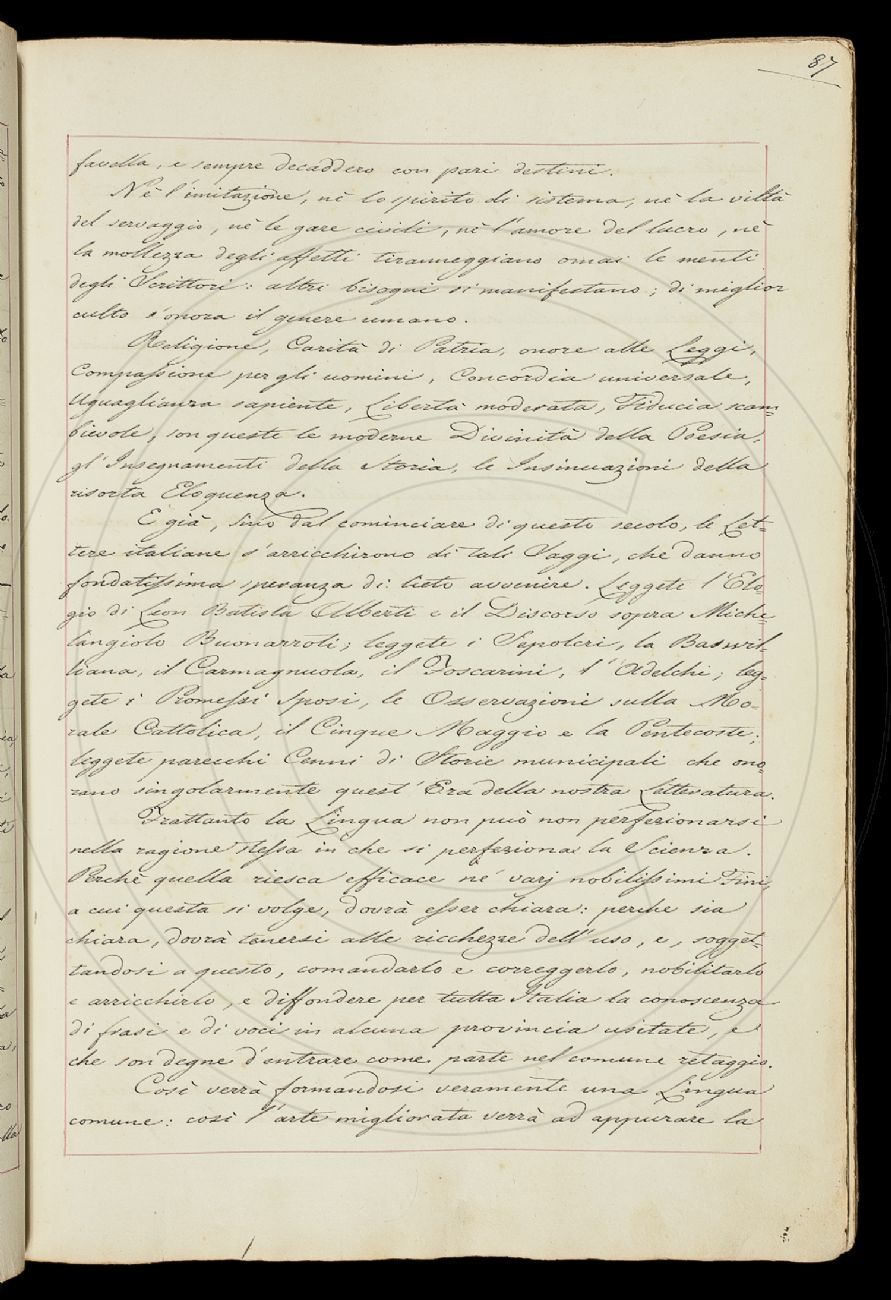 87
favella, e sempre decaddero con pari destini.
Nè l'imitazione, nè lo spirito di sistema, nè la viltà
del servaggio, nè le gare civili, nè l'amore del lucro, nè
la mollezza degli affetti tiranneggiano omai le menti
degli Scrittori: altri bisogni si manifestano; di miglior
culto s'onora il genere umano.
Religione, Carità di Patria, onore alle Leggi,
Compassione per gli uomini, Concordia universale,
Uguaglianza sapiente, Libertà moderata, Fiducia scam=
bievole, son queste le moderne Divinità della Poesia,
gl'Insegnamenti della Storia, le Insinuazioni della
risorta Eloquenza.
E già, sino dal cominciare di questo secolo, le Let=
tere italiane s'arricchirono di tali Saggi, che danno
fondatissima speranza di lieto avvenire. Leggete l'Elo
gio di Leon Batista Alberti e il Discorso sopra Miche
langiolo Buonarroti; leggete i Sepolcri, la Baswil=
liana, il Carmagnuola, il Foscarini, l'Adelchi; leg=
gete i Promessi Sposi, le Osservazioni sulla Mo=
rale Cattolica, il Cinque Maggio e la Pentecoste;
leggete parecchi Cenni di Storie municipali che ono=
rano singolarmente quest'Era della nostra Letteratura.
Frattanto la Lingua non può non perfezionarsi
nella ragione stessa in che si perfeziona la Scienza.
Perchè quella riesca efficace ne' varj nobilissimi Fini,
a cui questa si volge, dovrà esser chiara: perchè sia
chiara, dovrà tenersi alle ricchezze dell'uso, e, sogget=
tandosi a questo, comandarlo e correggerlo, nobilitarlo
e arricchirlo, e diffondere per tutta Italia la conoscenza
di frasi e di voci in alcuna provincia usitate, e
che son degne d'entrare come parte nel comune retaggio.
Così verrà formandosi veramente una Lingua
comune: così l'arte migliorata verrà ad appurare la